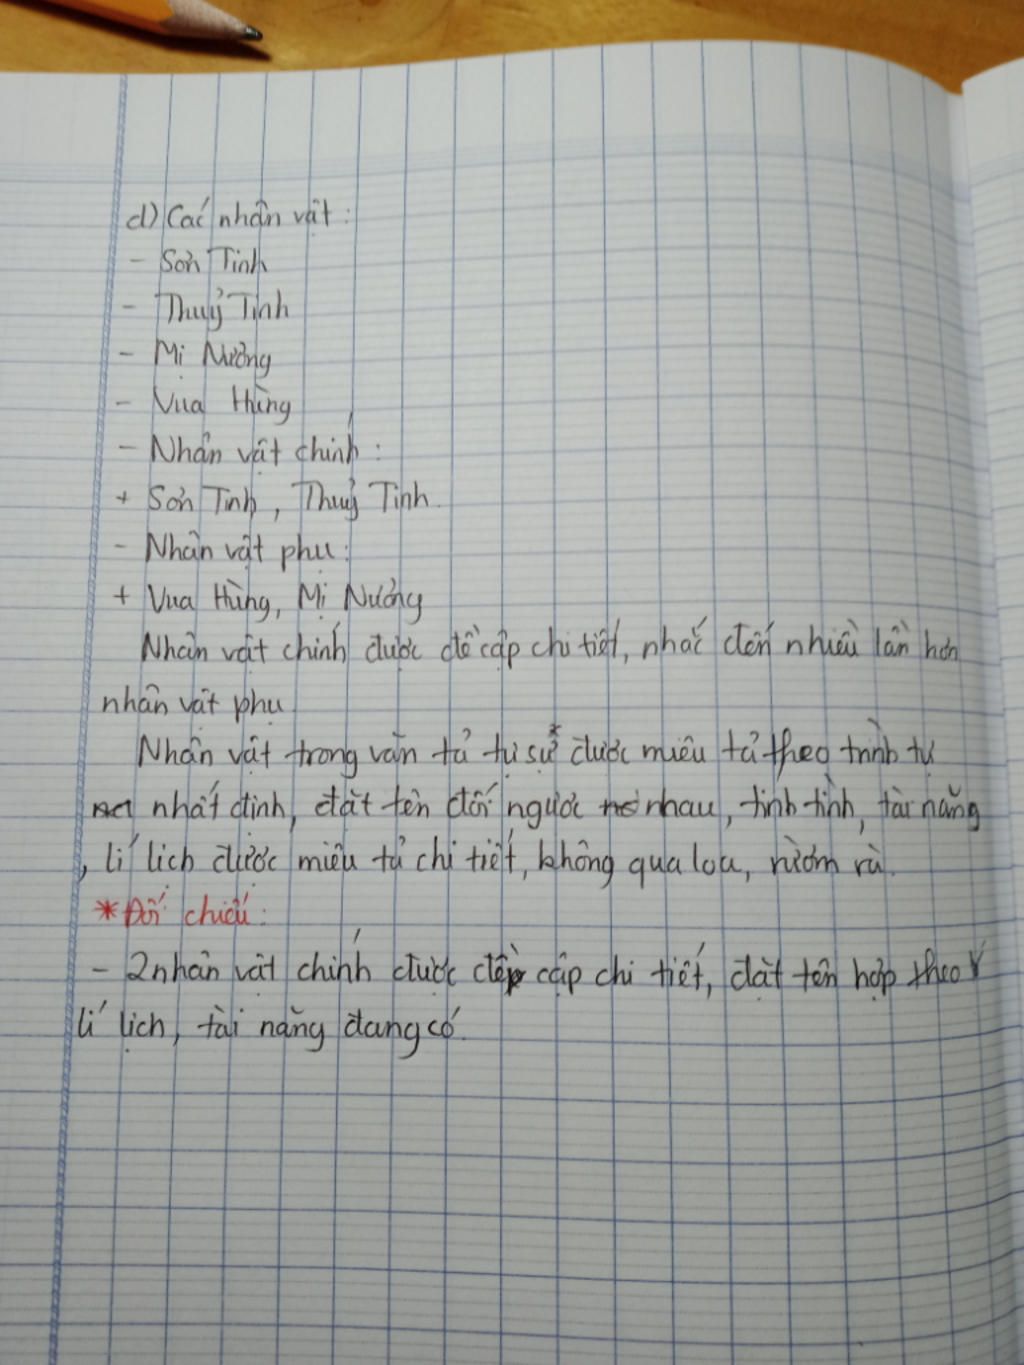 d) Các nhân vật :
- Sơn Tinh
- Thuỷ Tinh
- Mị Nương
- Vua Hùng
- Nhân vật chính :
+ Sơn Tinh, Thuỷ Tinh.
- Nhân vật phụ :
+ Vua Hùng, Mị Nương
Nhân vật chính được đề cập chi tiết, nhắc đến nhiều lần hơn
nhân vật phụ
Nhân vật trong văn tả tự sự được miêu tả theo trình tự
nhất định, đặt tên đối ngược nhau, tính tình, tài năng
, lí lịch được miêu tả chi tiết, không qua loa, rườm rà.
* Đối chiếu :
- 2 nhân vật chính được đề cập chi tiết, đặt tên hợp theo
lí lịch, tài năng đang có.